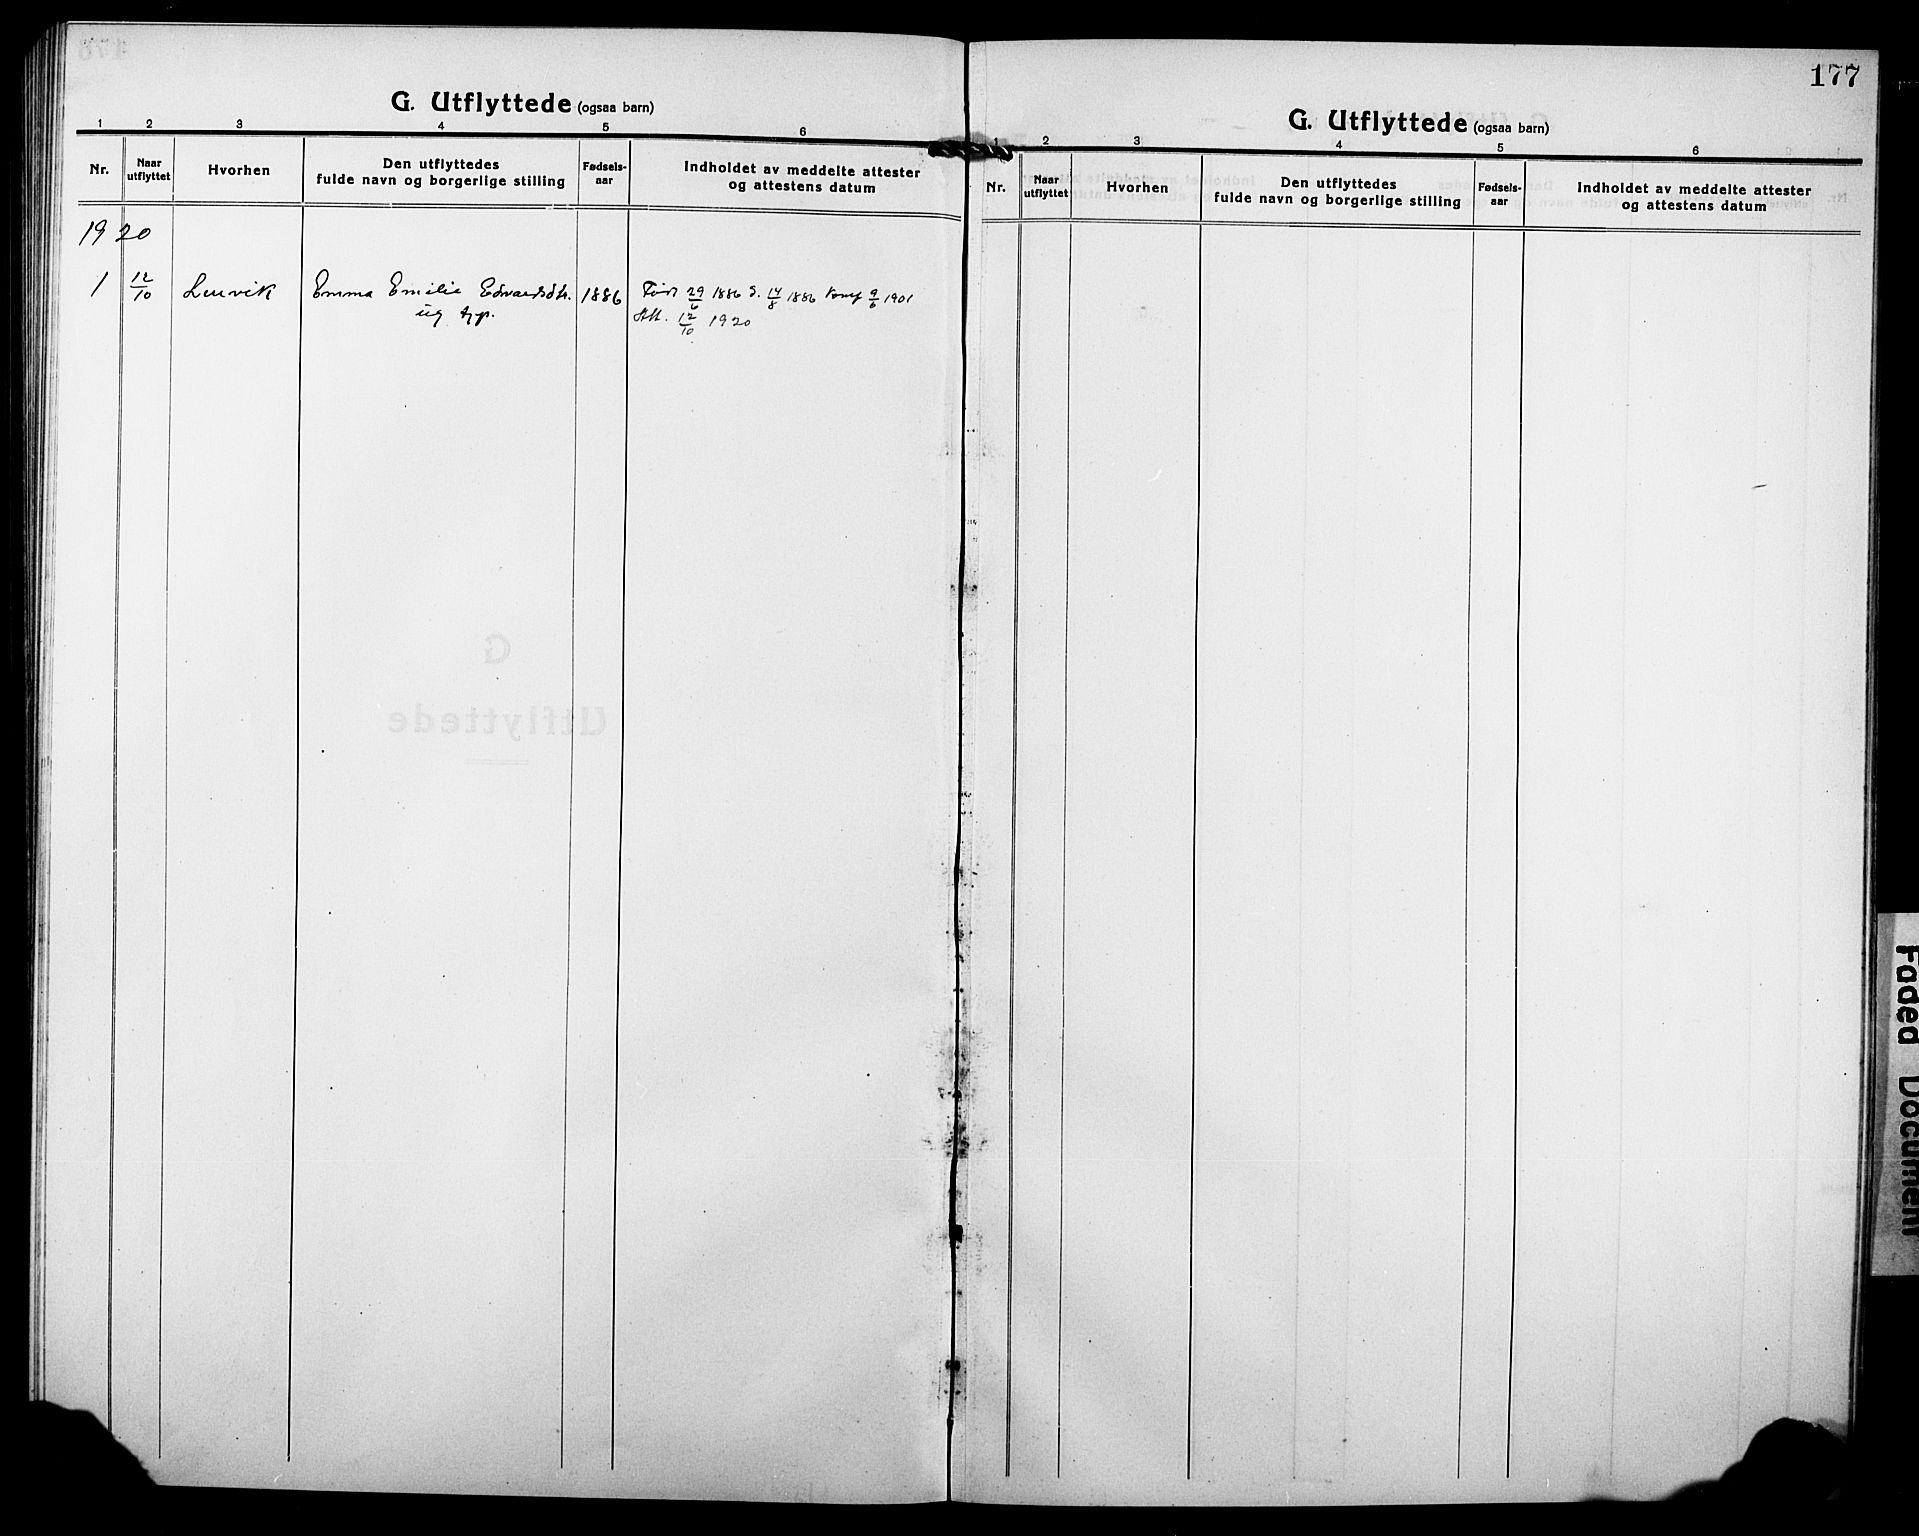 G. Utflyttede (ogsaa barn)
1 2 3 4 5 6
Nr. Naar utflyttet Hvorhen Den utflyttedes fulde navn og borgerlige stilling Fødsels-aar Indholdet av meddelte attester og attestens datum
1920
1 12/10 Lenvik Emma Emilie Edvardsdtr. 1886 Født 29/6 1886 d. 14/8 1886 konf 9/6 1901
ug Att. 12/10 1920
177
G. Utflyttede (ogsaa barn)
1 2 3 4 5 6
Nr. Naar utflyttet Hvorhen Den utflyttedes fulde navn og borgerlige stilling Fødsels-aar Indholdet av meddelte attester og attestens datum
Faded Document